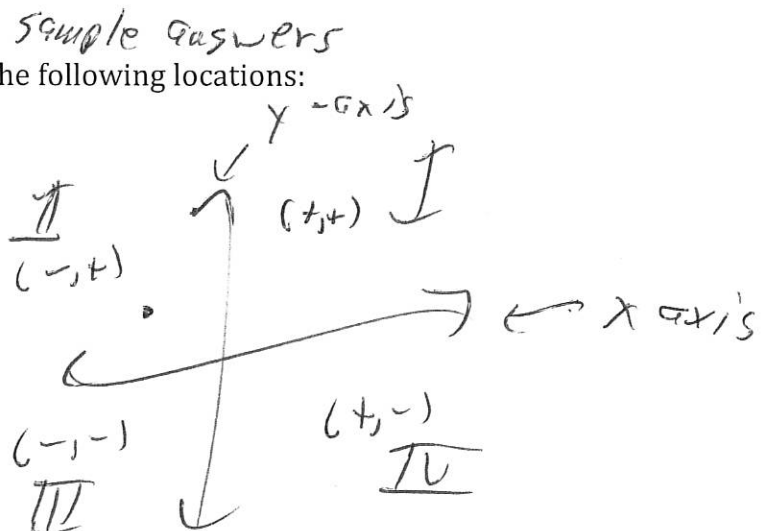 sample answers
he following locations:
y-axis
II
(+,+)
I
(-,+)
x axis
(-,-)
(+,-)
III
IV